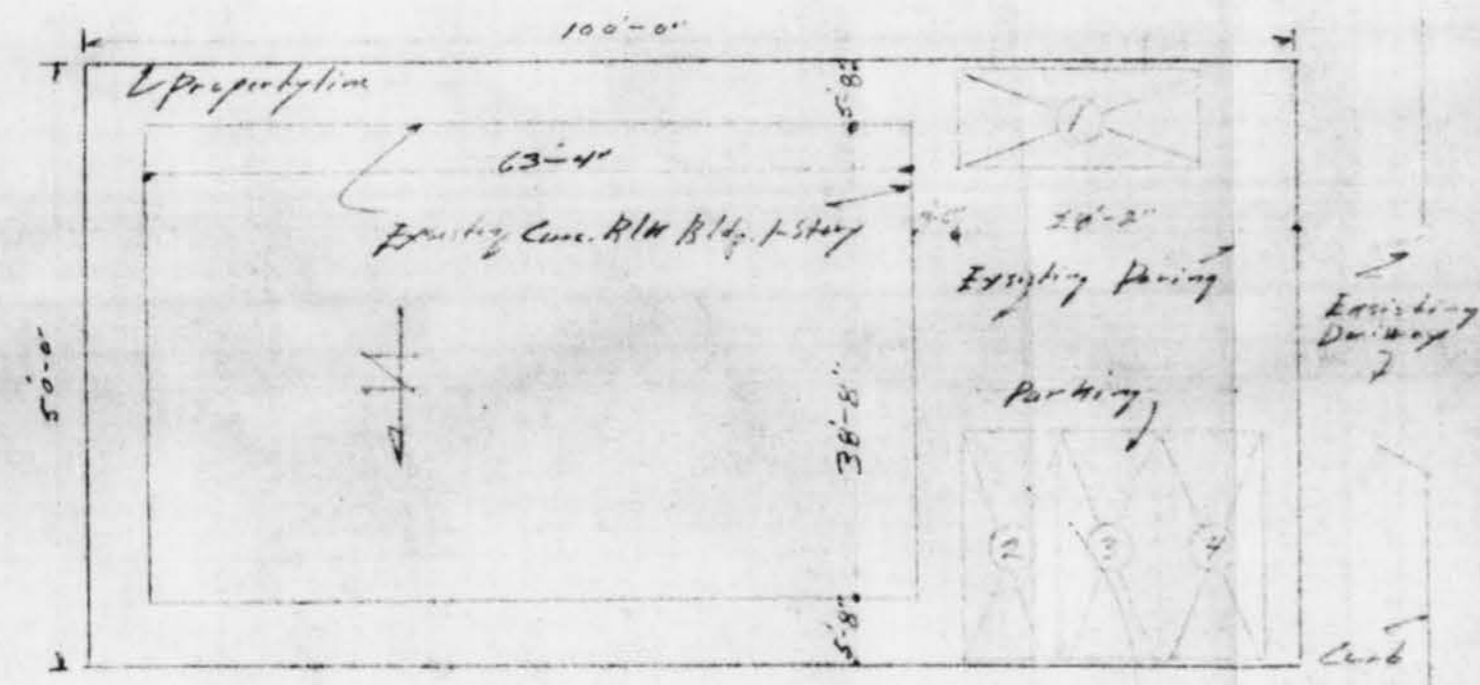 100'-0"
Property line
5'-8"
63'-4"
Existing Conc. Blk Bldg. 1-Story
28'-2"
Exsisting Paving
Exsisting
Driveway
50'-0"
38'-8"
Parking
1
2
3
4
5'-8"
Curb